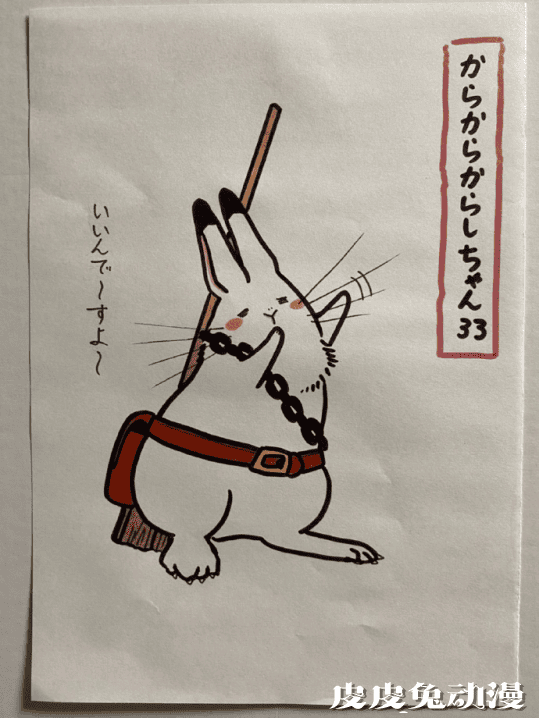 からからからしちゃん33
いいんで〜すよ〜
皮皮兔动漫